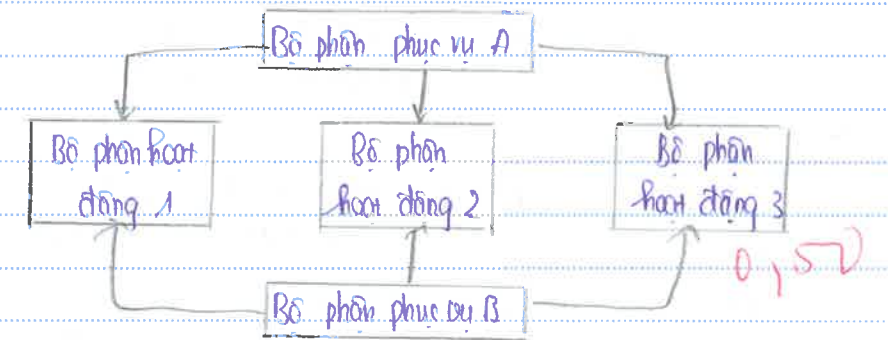 Bộ phận phục vụ A
Bộ phận hoạt
động 1
Bộ phận
hoạt động 2
Bộ phận
hoạt động 3
0,50
Bộ phận phục vụ B